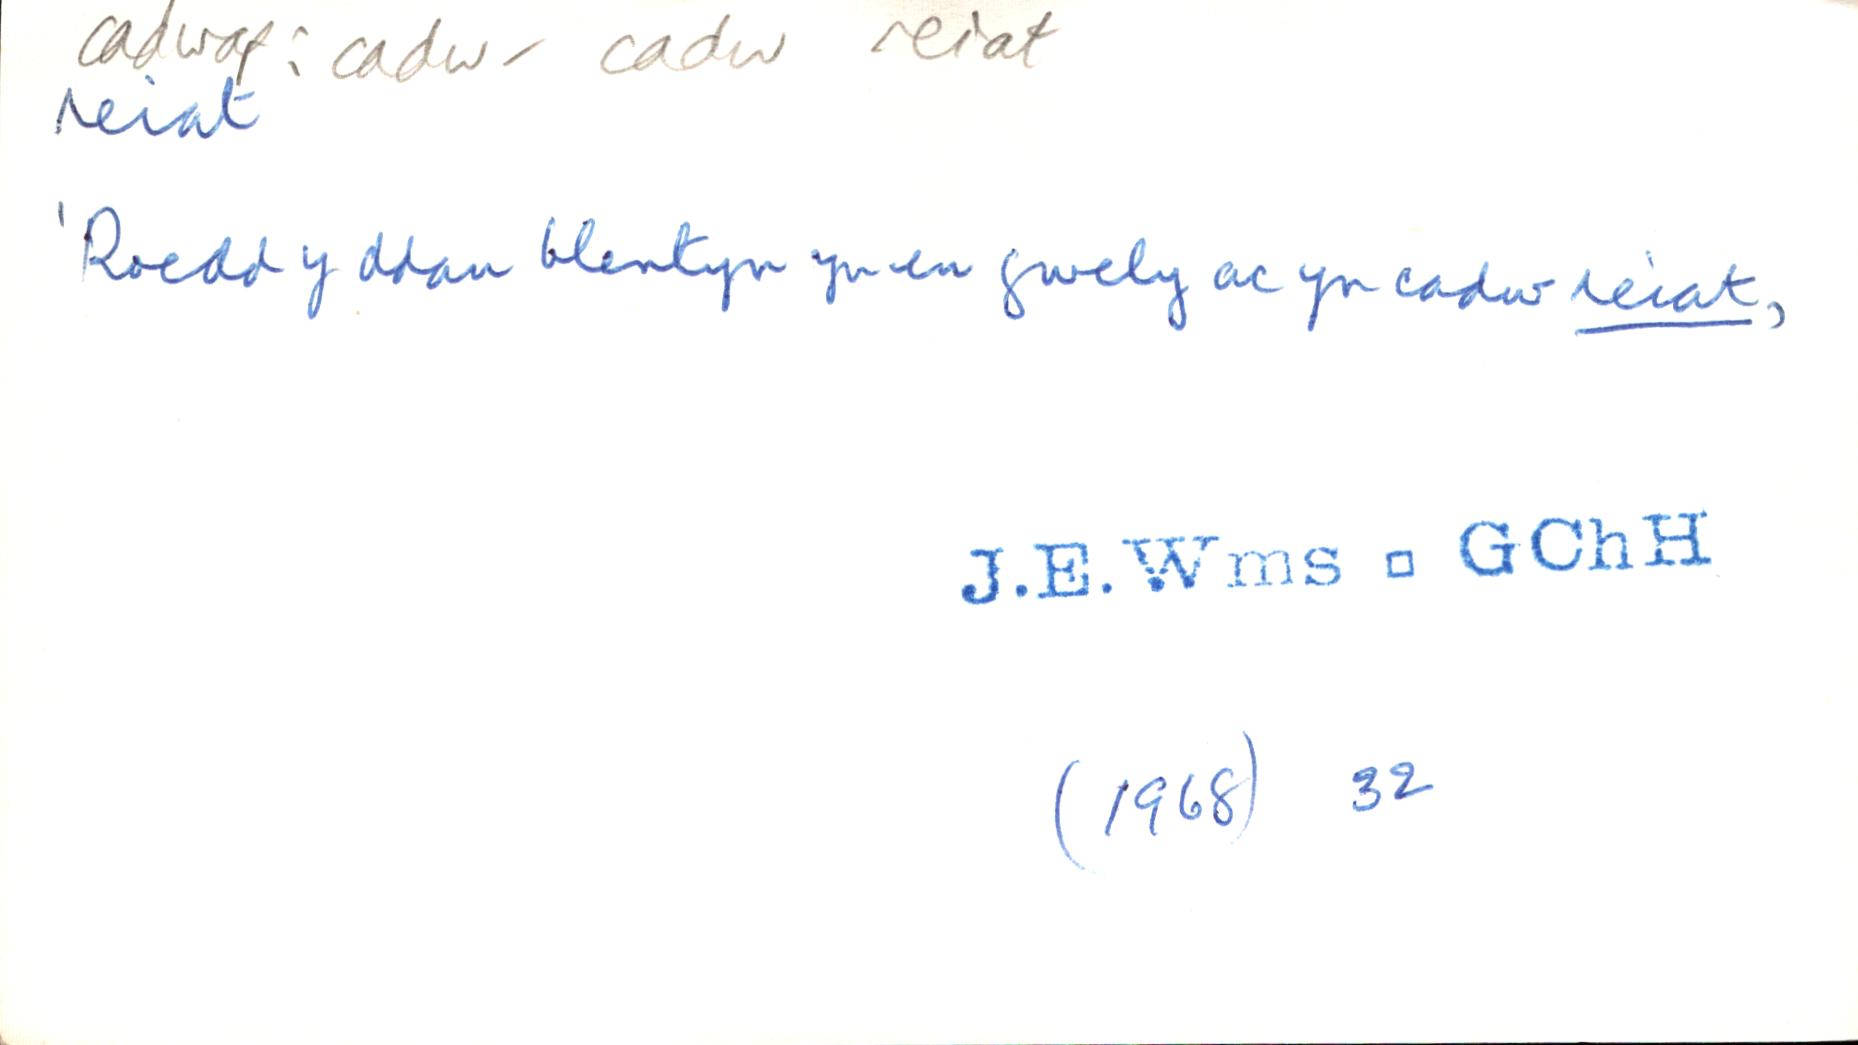 cadwaf: cadw - cadw reiat
reiat
'Roedd y ddau blentyn yn eu gwely ac yn cadw reiat,
J.E.Wms ▫ GChH
(1968) 32